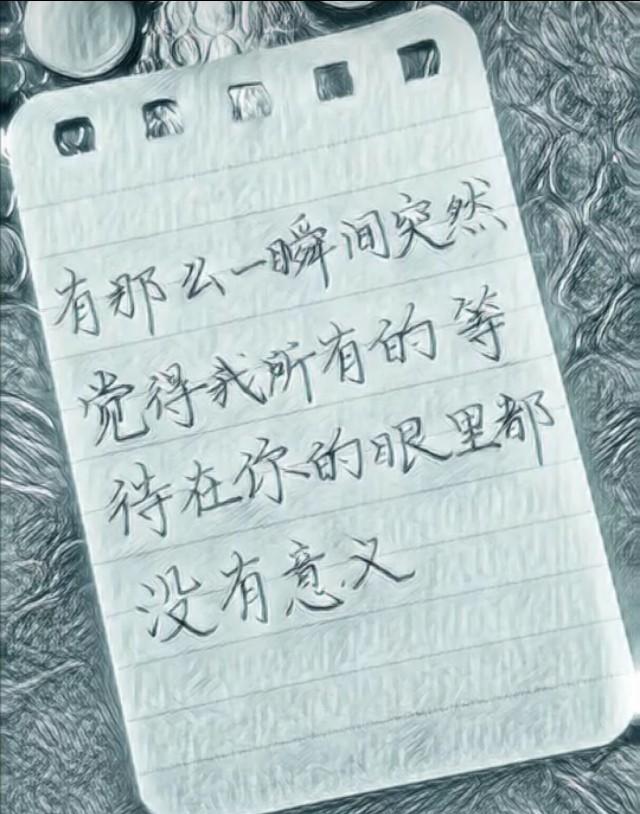 有那么一瞬间突然
觉得我所有的等
待在你的眼里都
没有意义